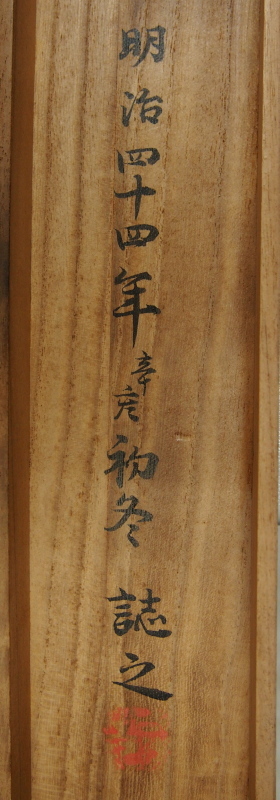 明治四十四年辛亥初冬 誌之